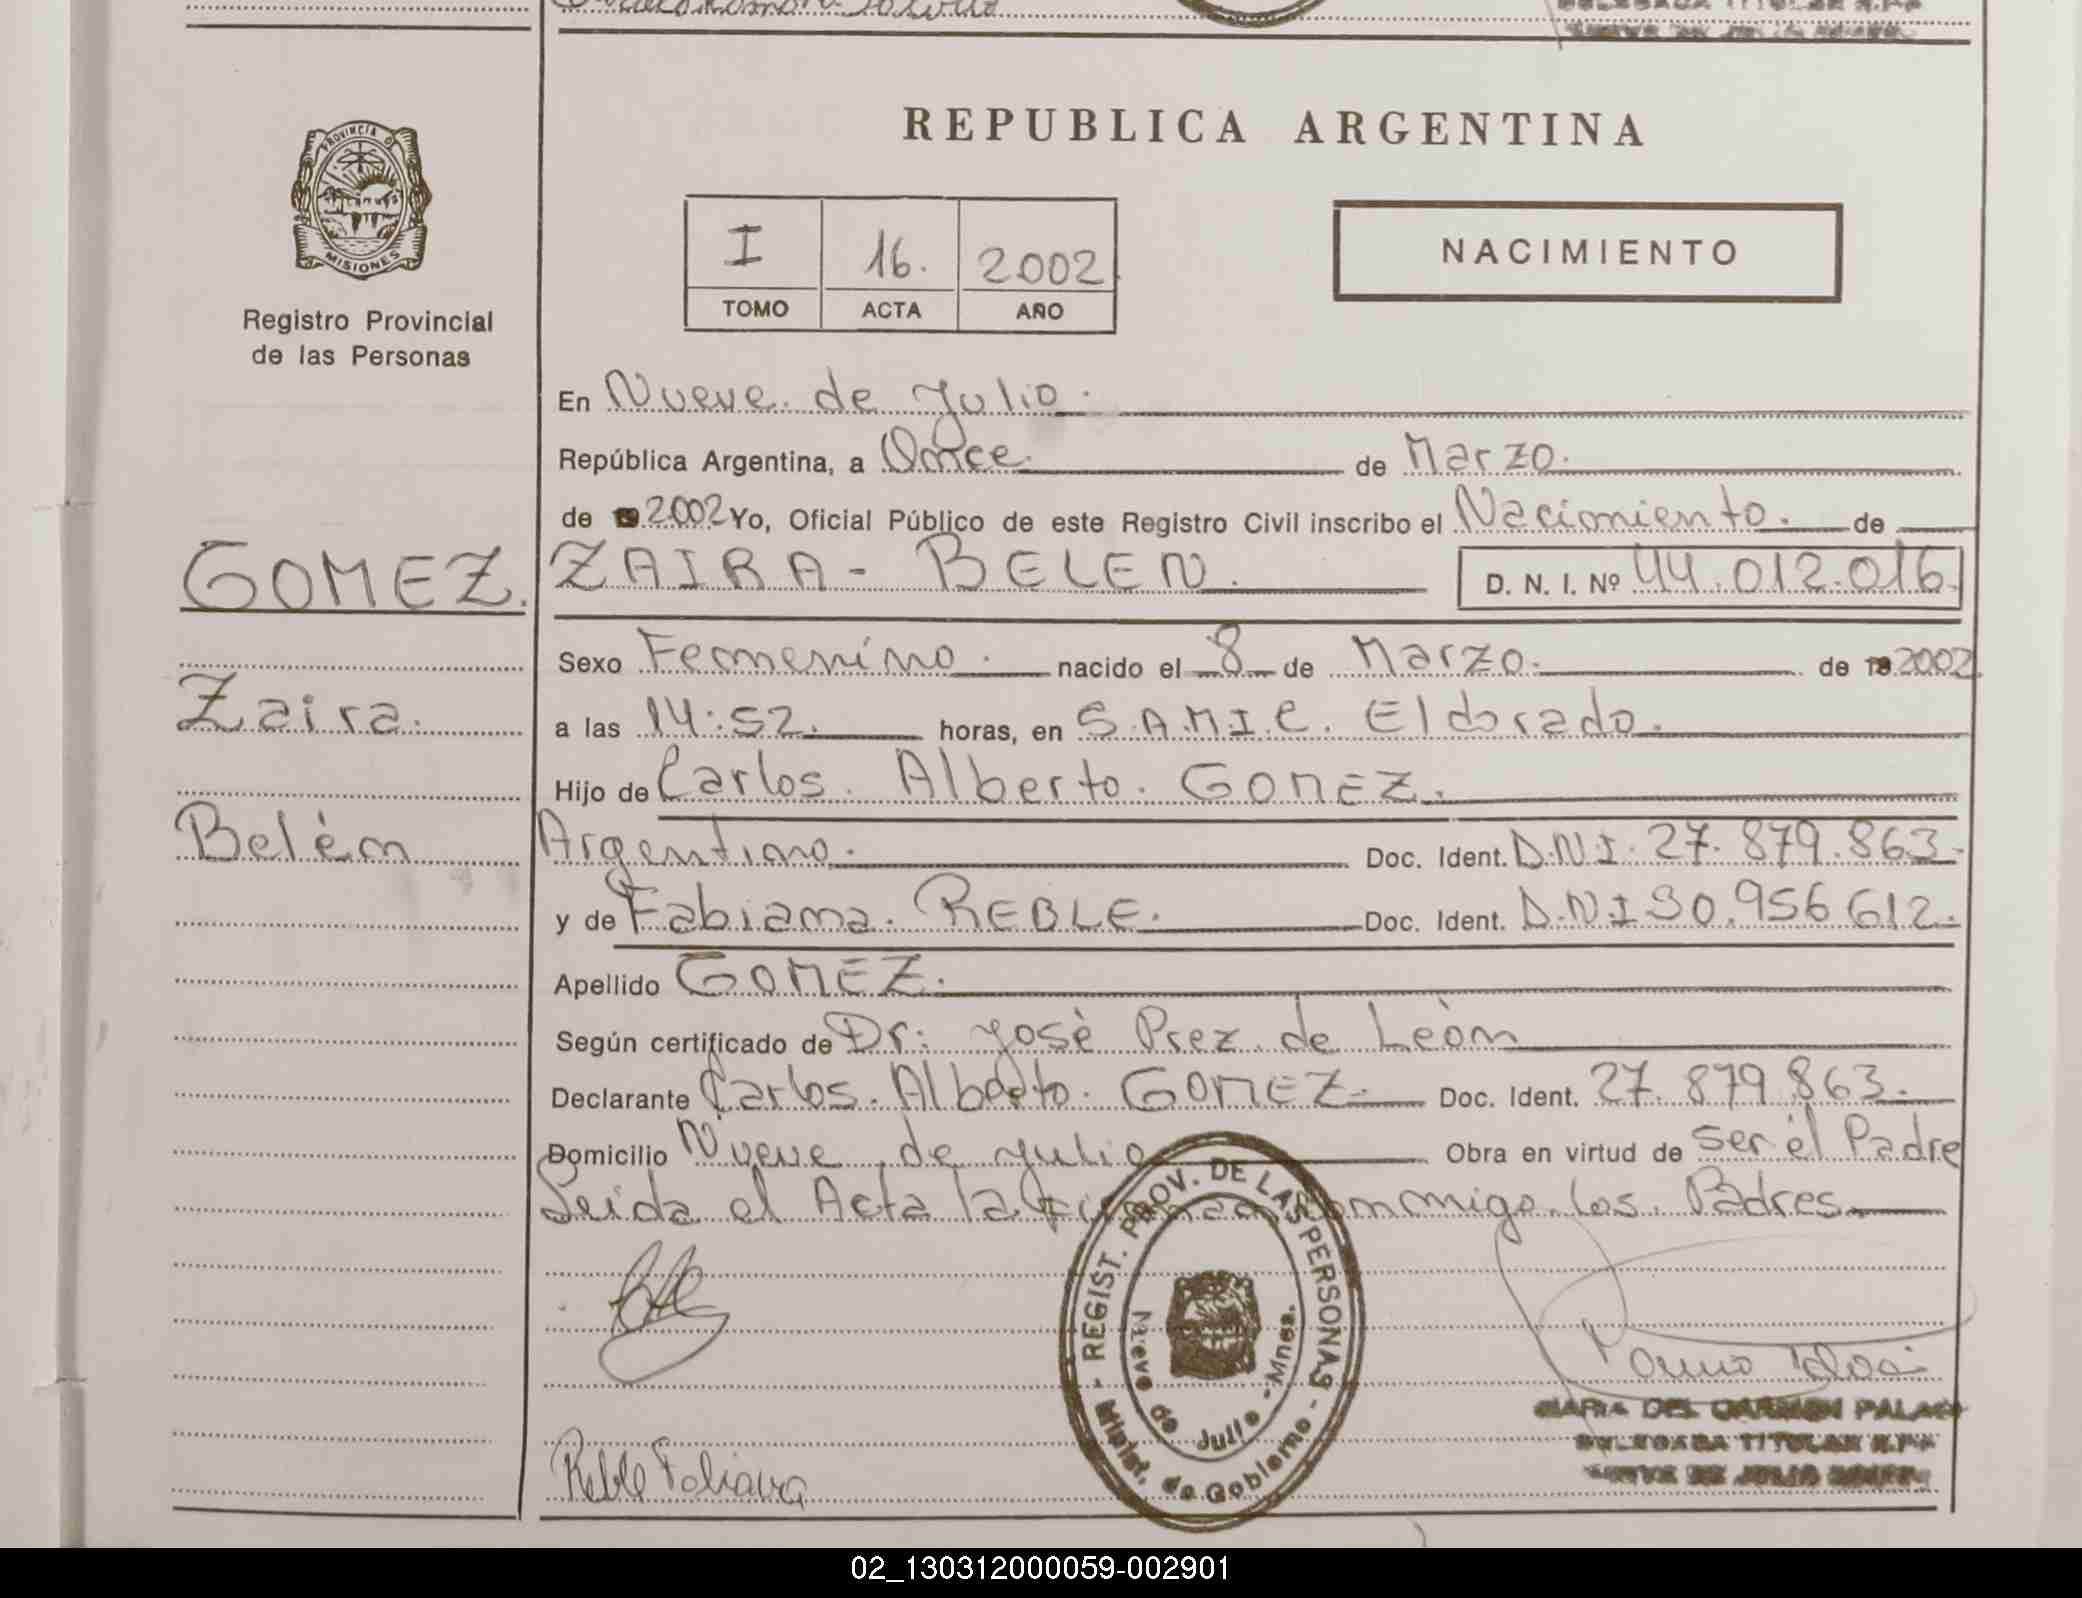 REPUBLICA ARGENTINA
PROVINCIA D
MISIONES
Registro Provincial
de las Personas
I 16. 2002
TOMO ACTA AÑO
NACIMIENTO
En Nueve de Julio.
República Argentina, a Once de Marzo.
de 2002 Yo, Oficial Público de este Registro Civil inscribo el Nacimiento. de
GOMEZ. ZAIRA - BELEN. D. N. I. Nº 44.012.016.
Sexo Femenino. nacido el 8 de Marzo. de 19 2002
Zaira. a las 14:52. horas, en S.A.M.I.C. Eldorado.
Hijo de Carlos. Alberto. GOMEZ.
Belén Argentino. Doc. Ident. D.N.I. 27.879.863.
y de Fabiana. REBLE. Doc. Ident. D.N.I 30.956.612.
Apellido GOMEZ.
Según certificado de Dr: José Prez de León
Declarante Carlos. Alberto. GOMEZ. Doc. Ident. 27.879.863.
Domicilio Nueve de Julio Obra en virtud de ser él Padre
Leida el Acta la conmigo los Padres.
REGIST. PROV. DE LAS PERSONAS
- Minist. de Gobierno -
Nueve de Julio - Mnes.
Reble Fabiana
MARIA DEL CARMEN PALACIO
DELEGADA TITULAR R.P.P.
NUEVE DE JULIO
02_130312000059-002901